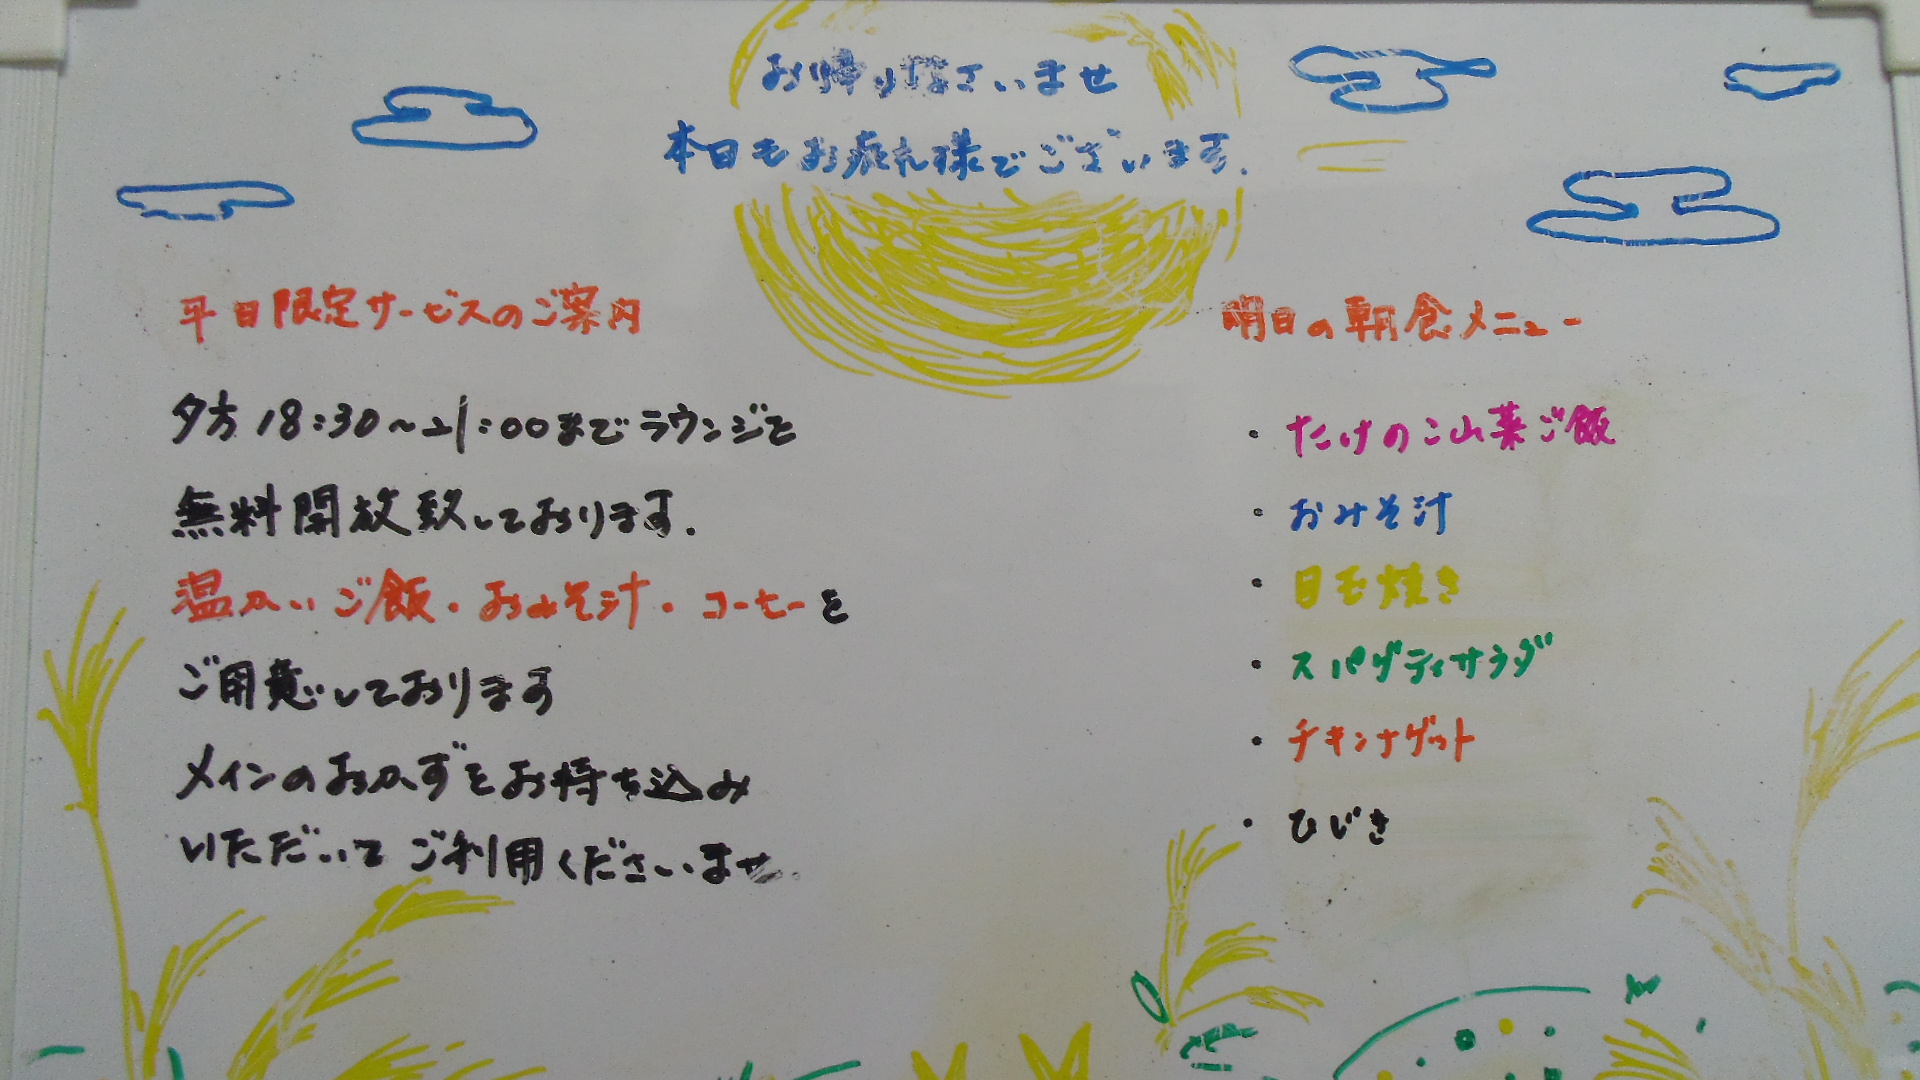 お帰りなさいませ
本日もお疲れ様でございます.
平日限定サービスのご案内
夕方 18:30～21:00までラウンジを
無料開放致しております.
温かいご飯・おみそ汁・コーヒーを
ご用意しております
メインのおかずをお持ち込み
いただいてご利用くださいませ.
明日の朝食メニュー
・たけのこ山菜ご飯
・おみそ汁
・目玉焼き
・スパゲティサラダ
・チキンナゲット
・ひじき